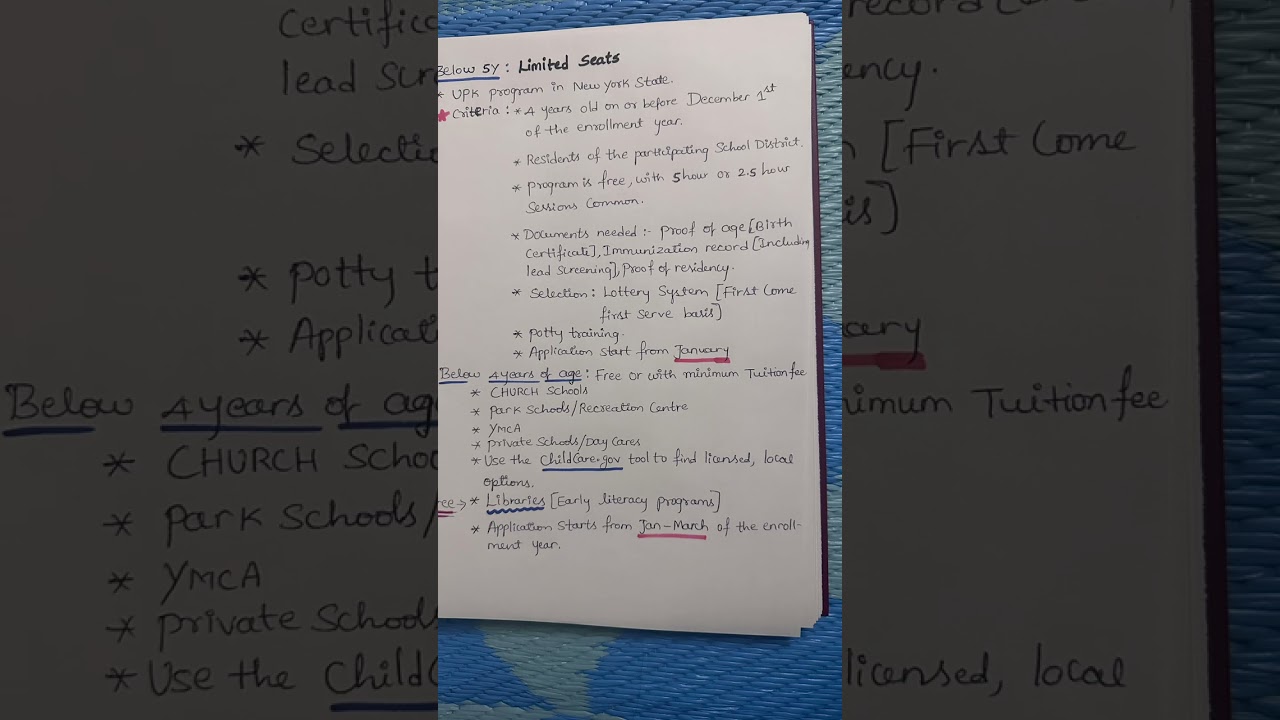 Below 5Y : Limited Seats
* UPK program in New York State.
* Criteria : * 4 years old on or before December 1st
of the enrollment year.
* Residents of the participating School District.
* program is free, with 5hour or 2.5 hour
Sessions Common.
* Documents needed :- Proof of age [Birth
Certificate], Immunization record [Including
lead Screening], Proof of residency.
* Selection : Lottery System [First Come
first Serve basis]
* potty training.
* Application start from January
Below 4years of age : Free or with minimum Tuition fee
* CHURCH Schools
* park Schools/Recreation Centre
* YMCA
* private Schools/Day Cares
* Use the ChildCare.gov tool to find licensed, local
options.
ee → * Libraries [Early literacy programs]
* Application Starts from Jan-March of the enroll-
ment year.